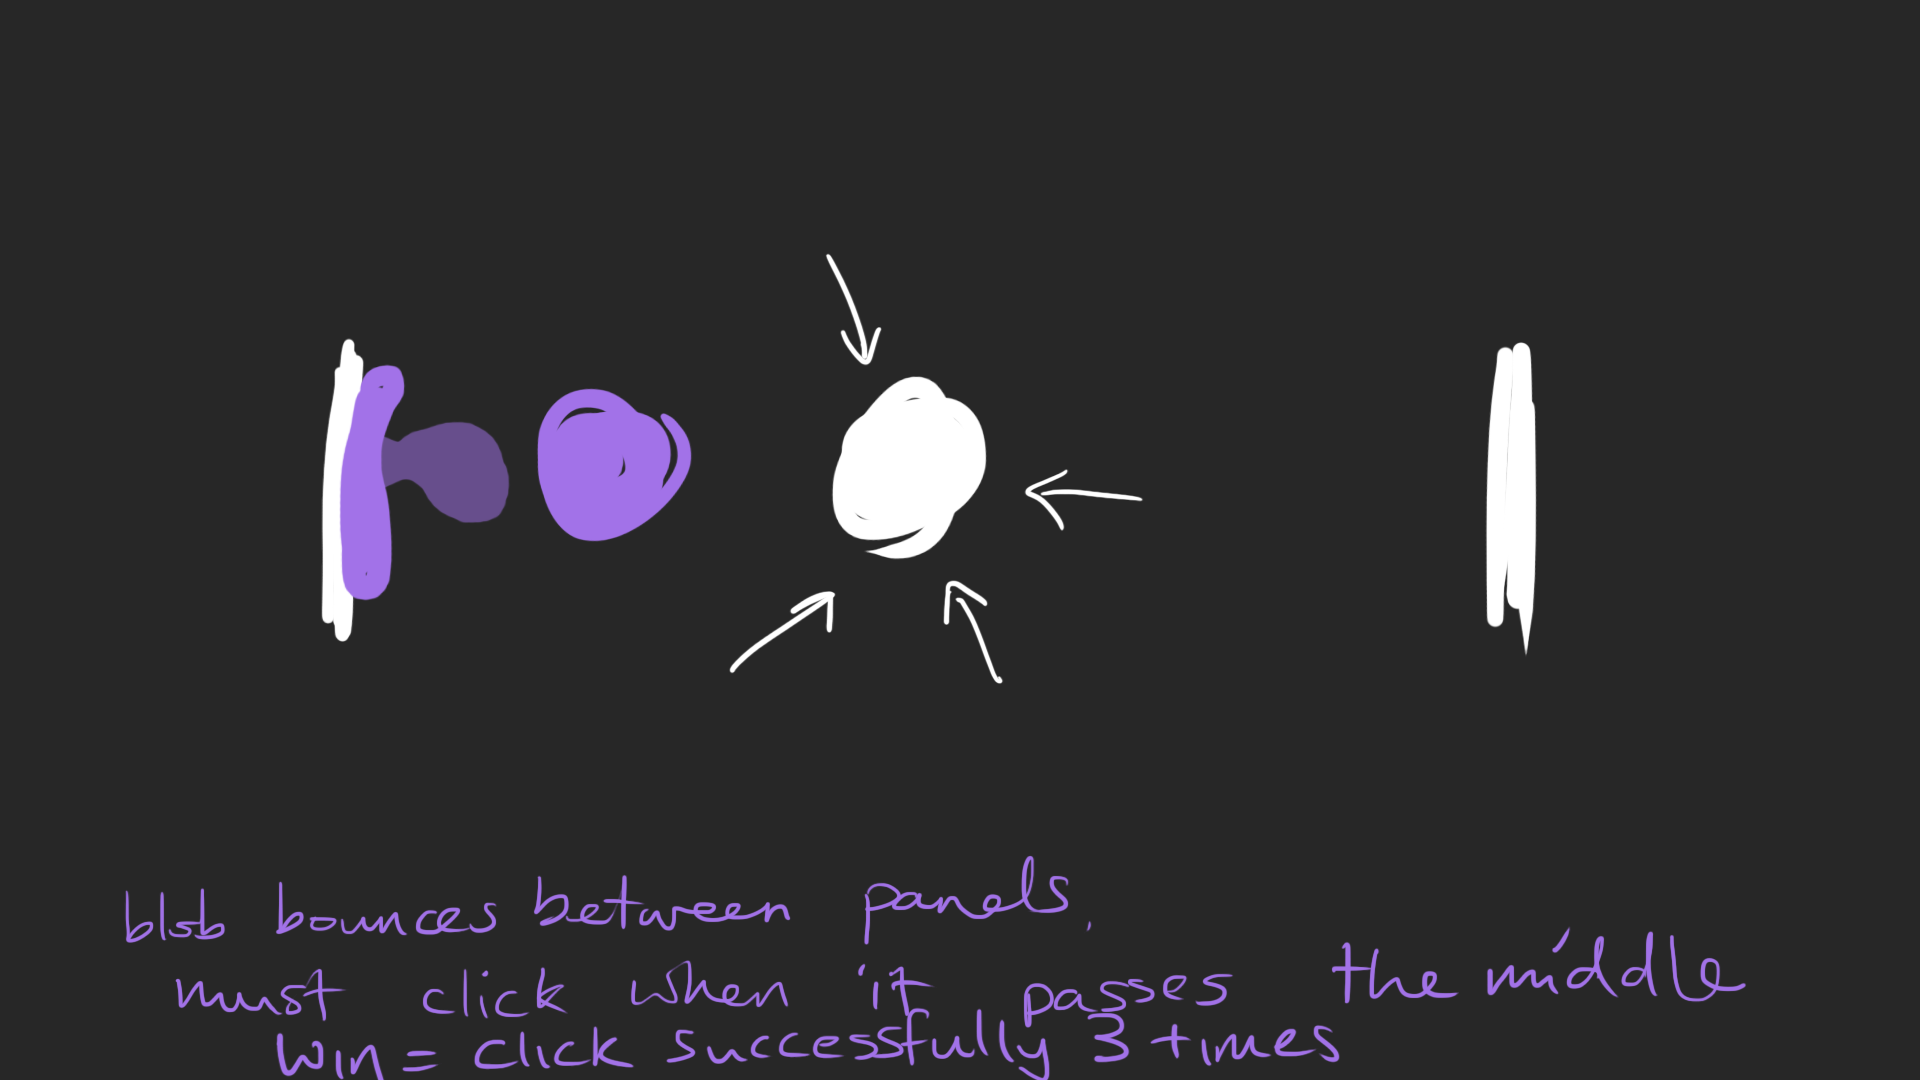 blob bounces between panels.
must click when it passes the middle
win = click successfully 3 times